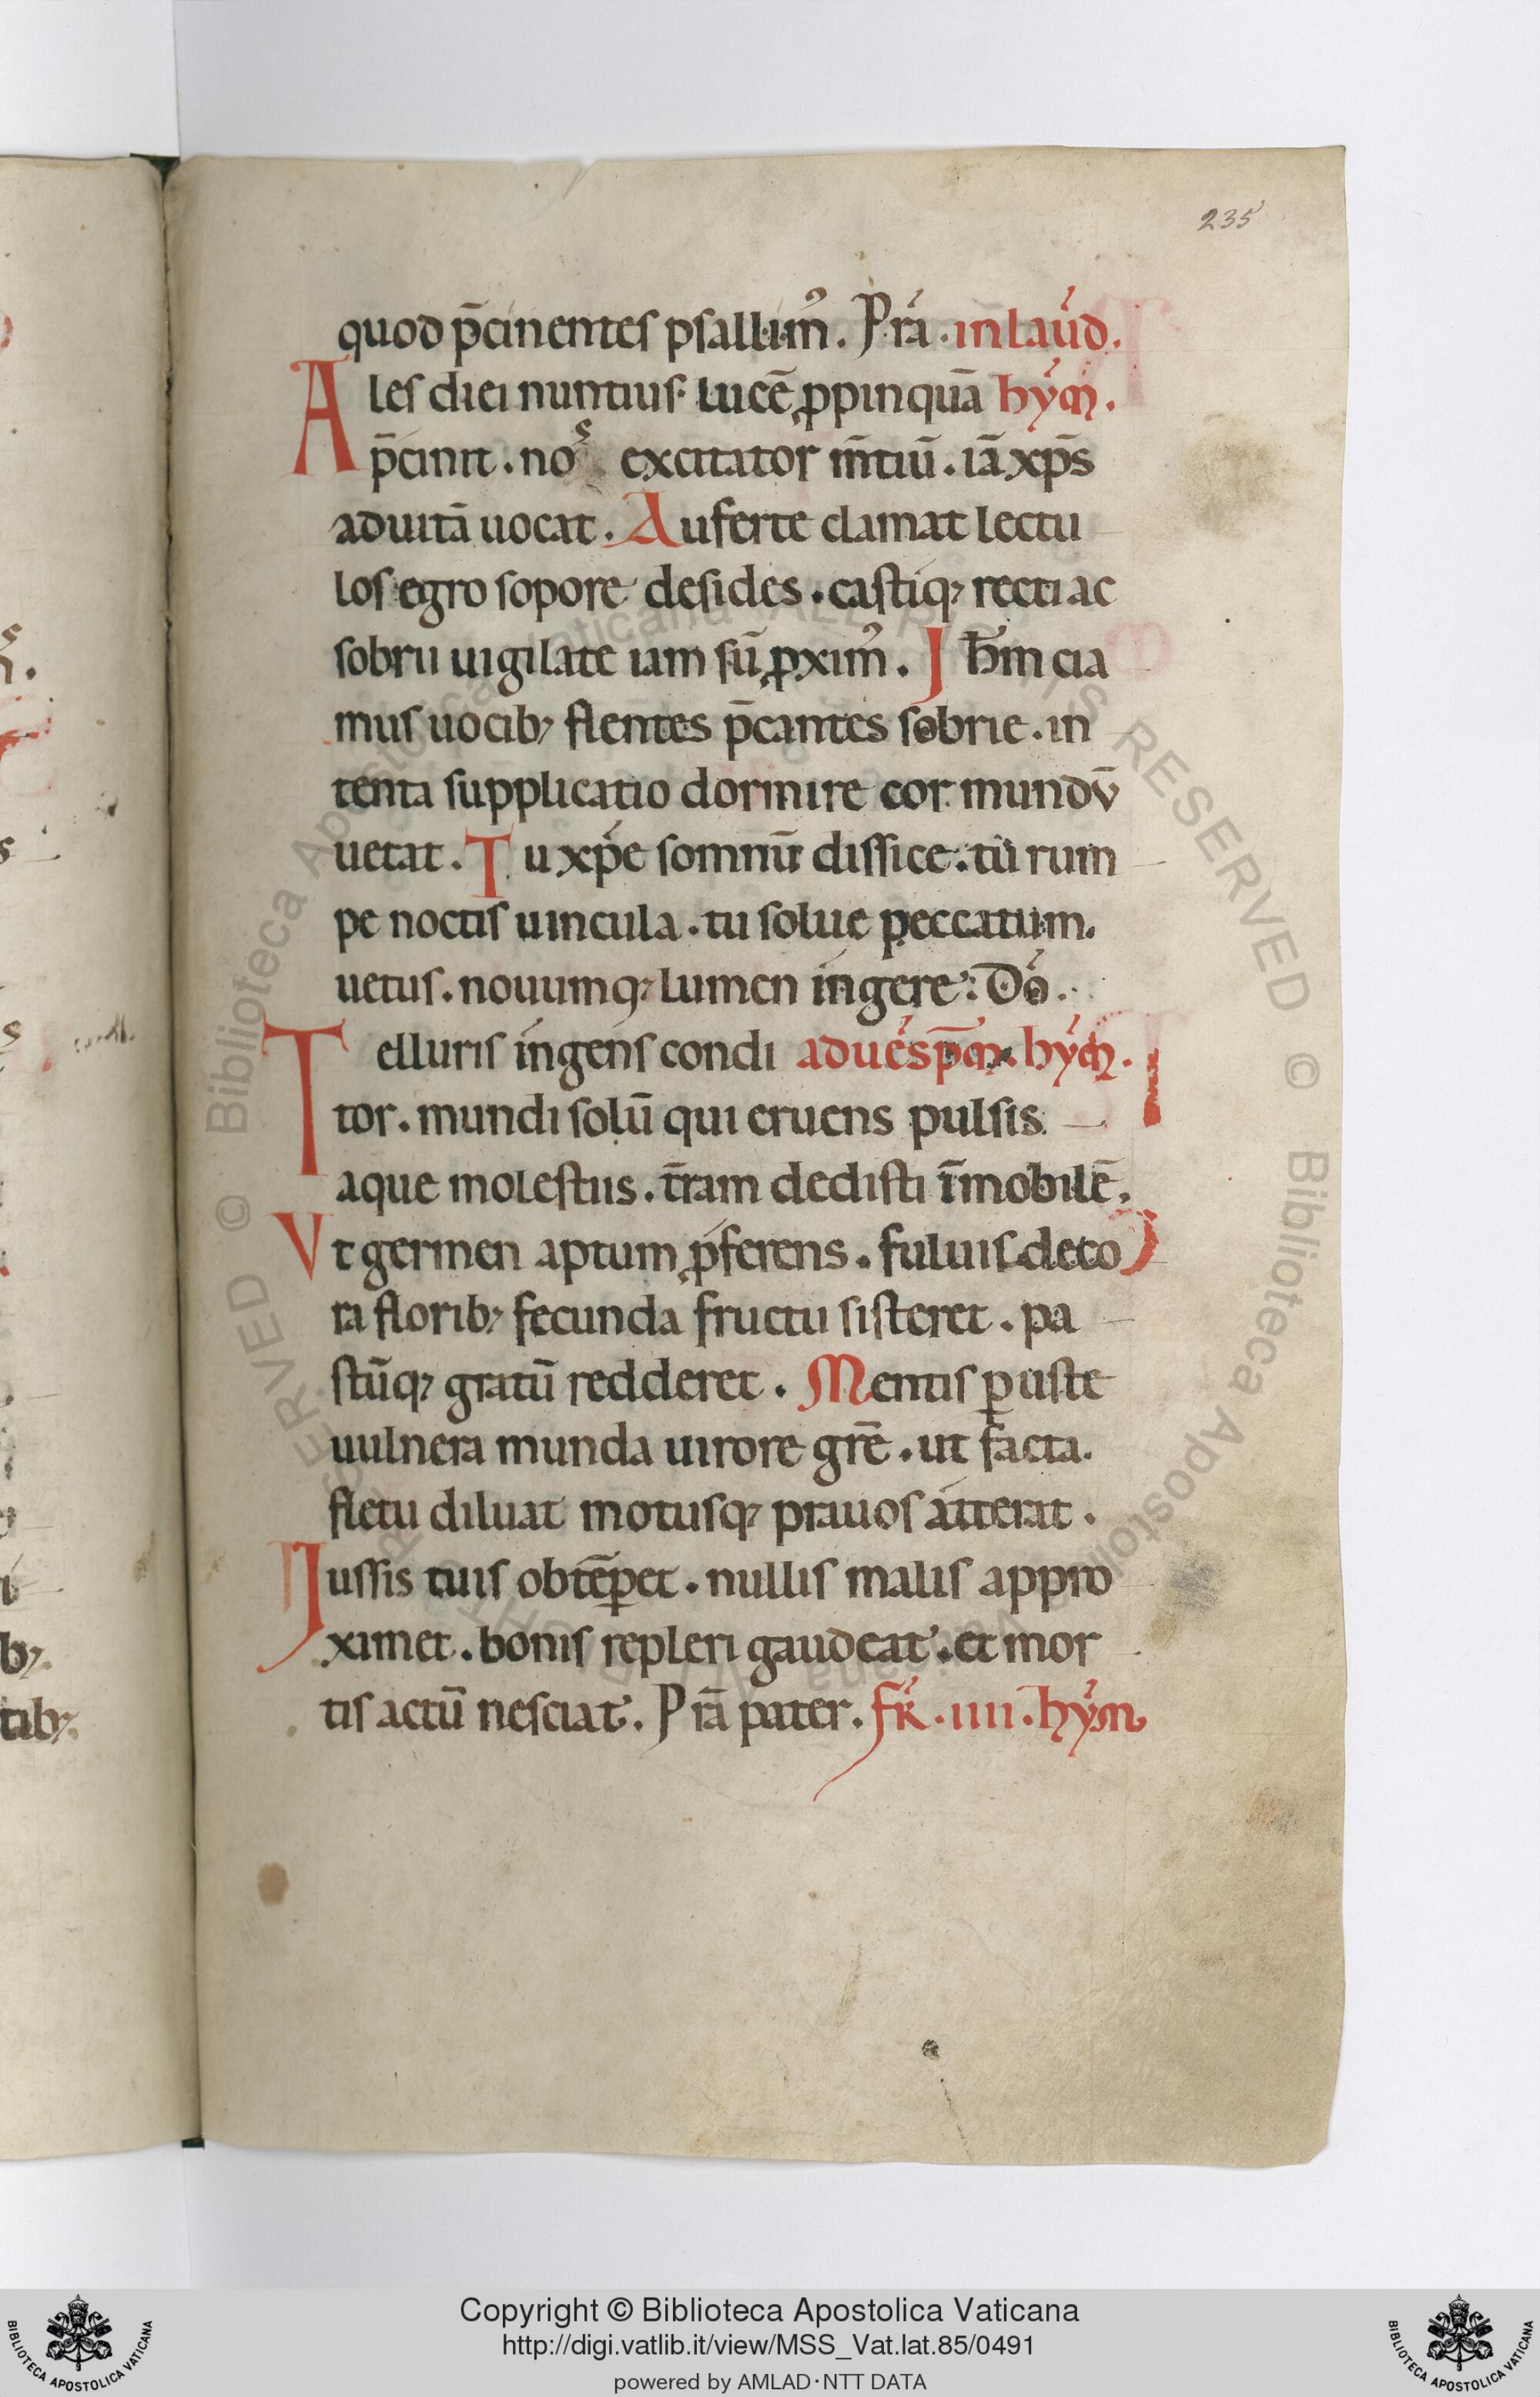 235
quod p̄cinentes psallim᾽. Pr̄a. in laud.
Ales diei nuntius. lucē ꝓpinquā hym̄.
p̄cinit. nos excitator m̄tiū. iā xp̄s
ad uitā uocat. Auferte clamat lectu
los egro sopore desides. castiq; recti ac
sobrii uigilate iam sū ꝓxim᾽. I h̄m cia
mus uocib; flentes p̄cantes sobrie. in
tenta supplicatio dormire cor mundū
uetat. Tu xp̄e somnū dissice. tū rum
pe noctis uincula. tu solue peccatum.
uetus. nouumq; lumen ingere. Dō.
Telluris ingens condi ad uesp̄m. hym̄.
tor. mundi solū qui eruens pulsis
aque molestiis. t̄ram dedisti īmobilē.
Vt germen aptum ꝓferens. fuluis deco
ra florib; fecunda fructu sisteret. pa
stūq; gratū redderet. Mentis ꝑuste
uulnera munda uirore gr̄e. ut facta.
fletu diluat motusq; prauos atterat.
Iussis tuis obtēꝑet. nullis malis appro
ximet. bonis repleri gaudeat. et mor
tis actū nesciat. Pr̄a pater. fr̄. IIII. hym̄
Copyright © Biblioteca Apostolica Vaticana
http://digi.vatlib.it/view/MSS_Vat.lat.85/0491
powered by AMLAD·NTT DATA
BIBLIOTECA APOSTOLICA VATICANA
BIBLIOTECA APOSTOLICA VATICANA